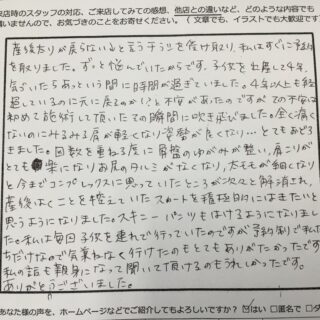 店時のスタッフの対応、ご来店してみての感想、他店との違いなど、どのような内容でも
構いませんので、お気づきのことをお寄せください。(文章でも、イラストでも大歓迎です
産後太りが戻らないと言うチラシを受け取り、私はすぐに予約
を取りました。ずっと悩んでいたからです。子供を出産して4年。
気づいたらあっという間に時間が過ぎていました。4年以上も経
過しているのに元に戻るのか!?と不安があったのですがその不安は
初めて施術して頂いたその瞬間に吹き飛びました。全く痛く
ないのにみるみる肩が軽くなり姿勢が良くなり…とてもおどろ
きました。回数を重ねる度に骨盤のゆがみが整い、肩こりが
とても楽になりお尻のタルミがなくなり、太ももが細くなりが
と今までコンプレックスに思っていたところが次々と解消され、
産後はくことを控えていたスカートを積極的にはきたいと
思うようになりました。スキニーパンツもはけるようになりまし
た。私は毎回子供を連れて行っていたのですが予約制で私た
ちだけなので気兼ねなく行けたのもとてもありがたかったです
私の話も親身になって聞いて頂けるのもうれしかったです。
ありがとうございました。
あなた様の声を、ホームページなどでご紹介してもよろしいですか? はい □匿名で